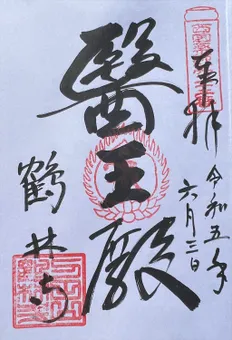 奉拝
令和五年
六月三日
醫王殿
鶴林寺